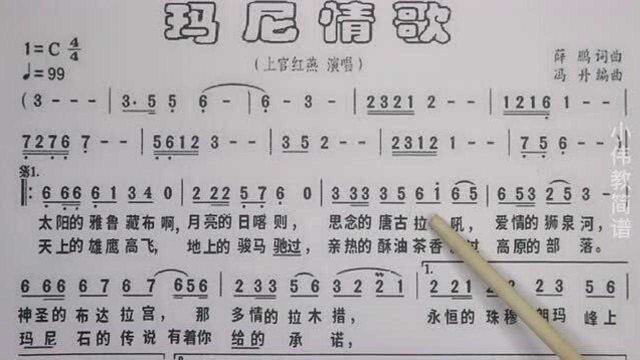 玛尼情歌
1=C 4/4
♩=99
(上官红燕 演唱)
薛 鹏 词曲
冯 丹 编曲
(3 - - - | 3· 5 5 | 6 - - | 6 - - - | 2321 2 - - | 1216 1 - - |
7276 7 - - | 5612 3 - - | 3 5 5 - | 2312 1 - - | 7 5 6 - - - ) |
𝄋1.
6 66 6 1 3 4 0 | 2 22 5 7 6 0 | 3 33 3 5 6 i 6 5 | 6 53 2 5 3 -
太阳的雅鲁藏布啊,月亮的日喀则, 思念的唐古拉 吼, 爱情的狮泉河,
天上的雄鹰高飞, 地上的骏马驰过, 亲热的酥油茶香 过 高原的部 落。
6 66 6 1 7 6 7 5 6 | 2 33 6 1 2 | 2 22 6 1 2 1
神圣的布达拉宫, 那 多情的拉木措, 永恒的珠穆朗玛 峰上
玛尼 石的传说有着你 给的 承 诺,
1.
2.
小伟教简谱